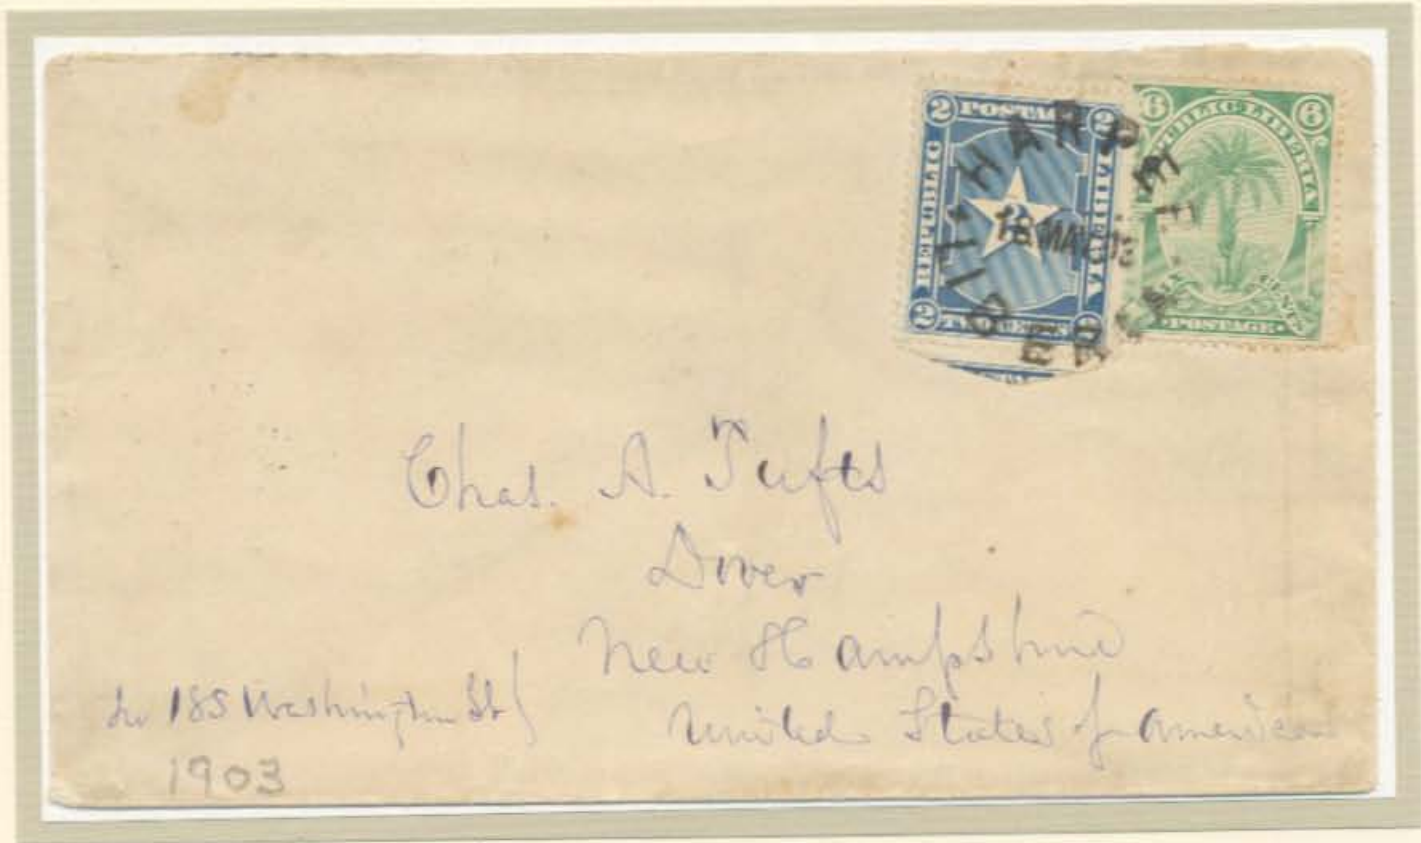 2 POSTAGE 2
REPUBLIC
LIBERIA
2 TWO CENTS 2
6 6
REPUBLIC LIBERIA
SIX CENTS
• POSTAGE •
HARPER
LIBERIA
18 MAY 03
Chas. A. Tufts
Dover
New Hampshire
United States of America
185 Washington St
1903